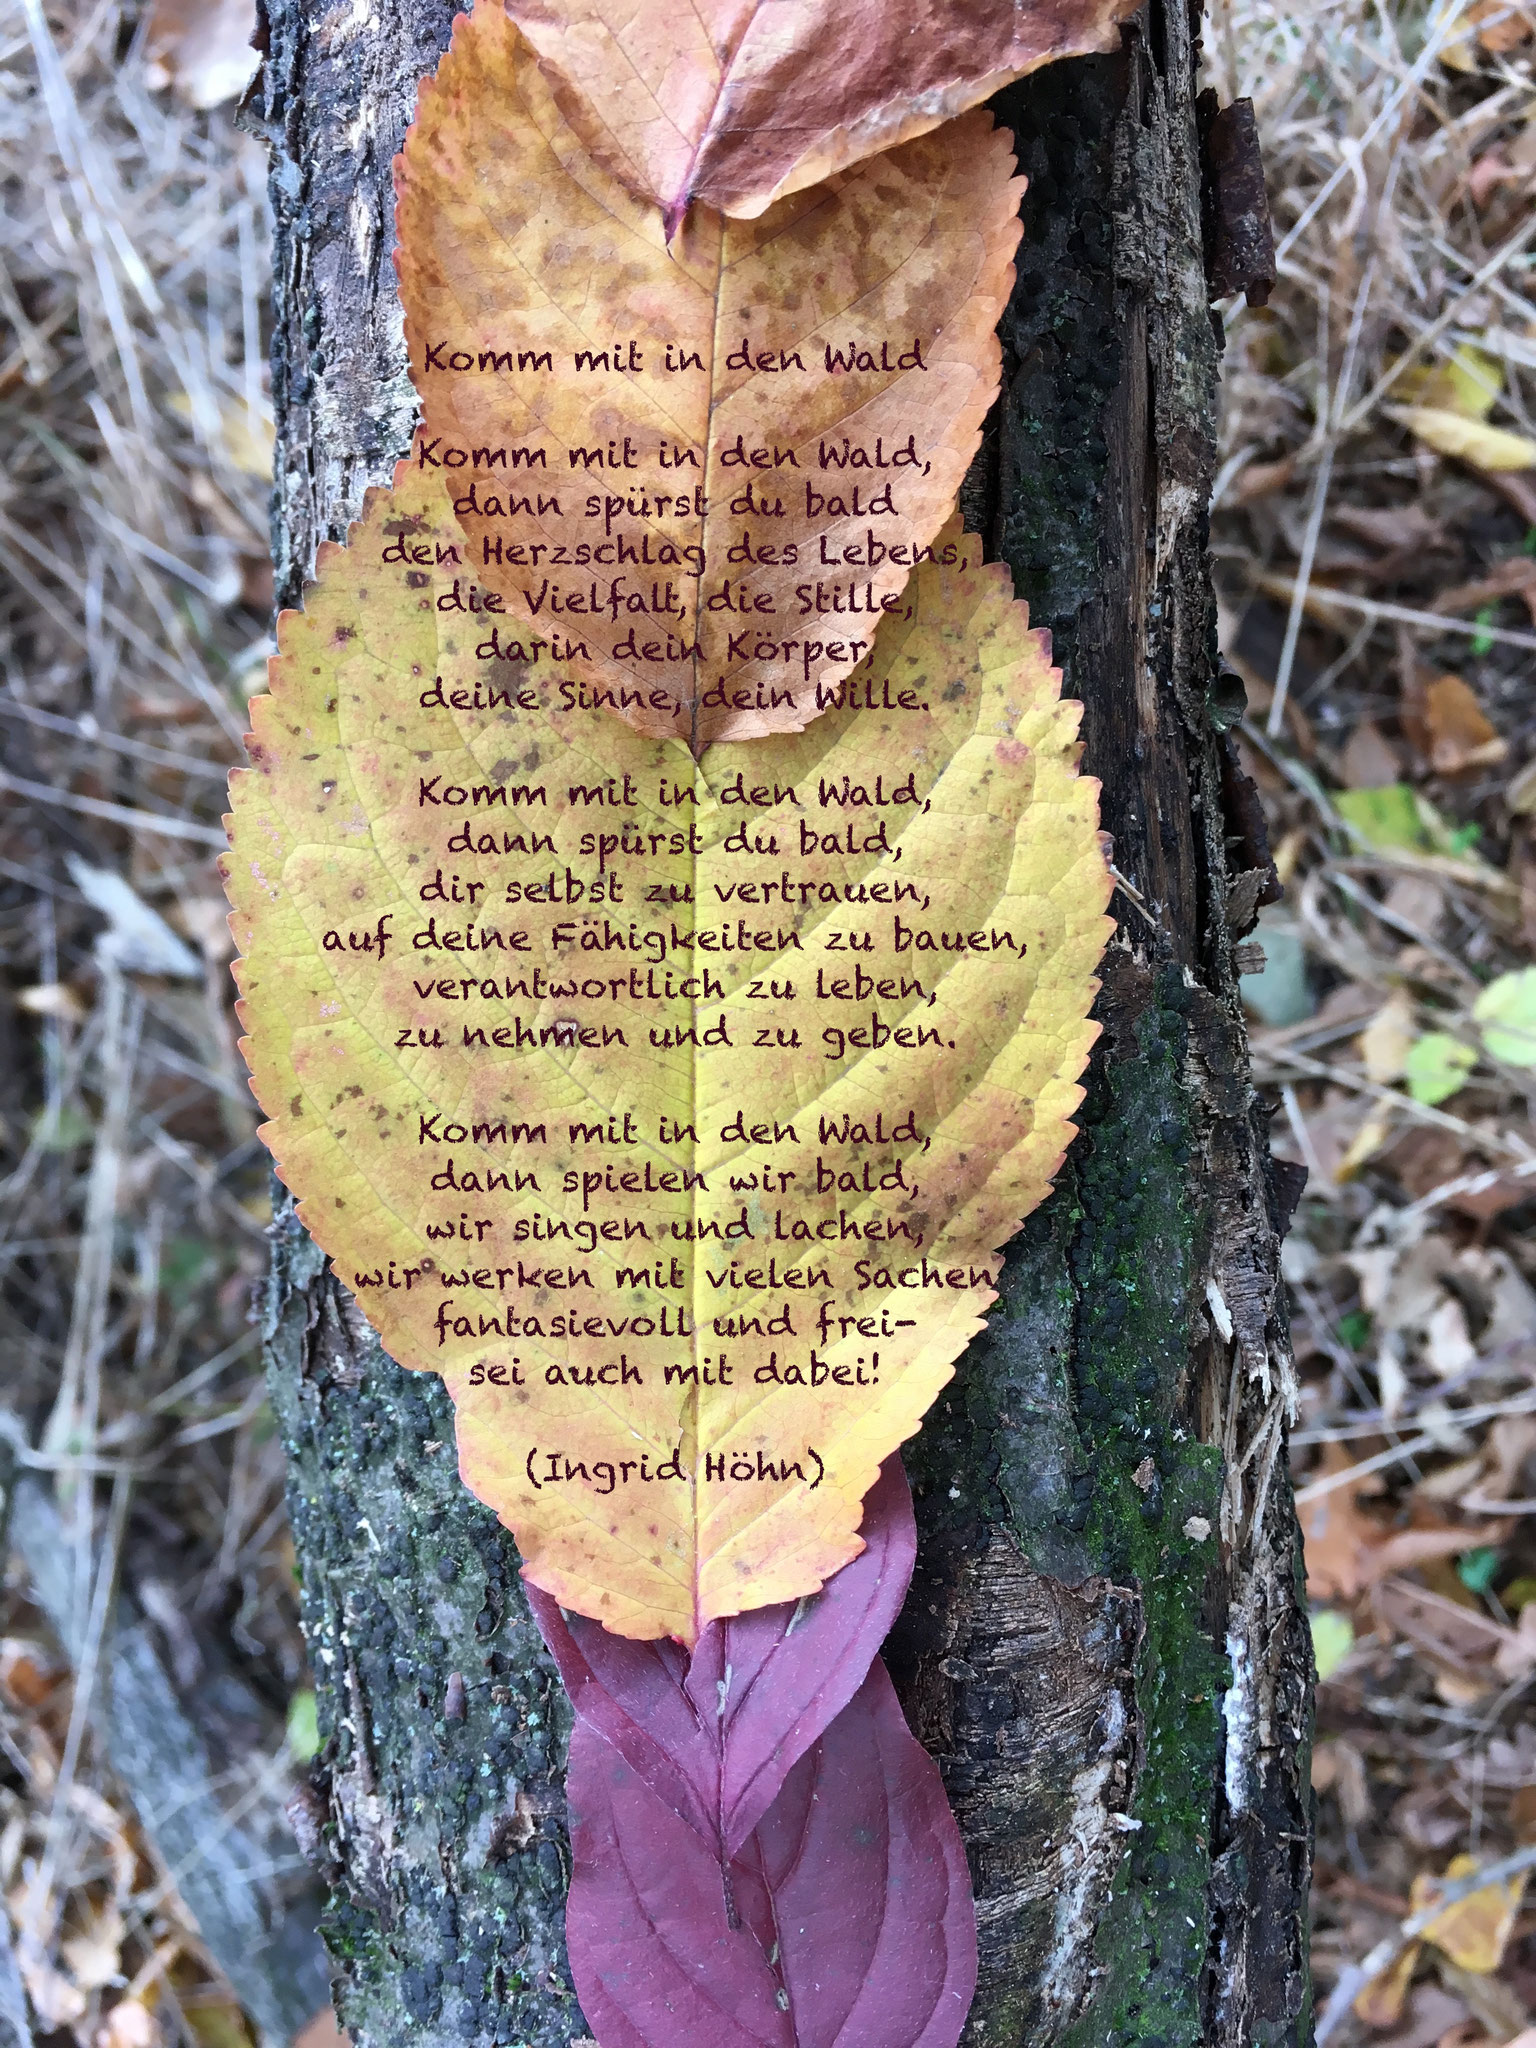 Komm mit in den Wald
Komm mit in den Wald,
dann spürst du bald
den Herzschlag des Lebens,
die Vielfalt, die Stille,
darin dein Körper,
deine Sinne, dein Wille.
Komm mit in den Wald,
dann spürst du bald,
dir selbst zu vertrauen,
auf deine Fähigkeiten zu bauen,
verantwortlich zu leben,
zu nehmen und zu geben.
Komm mit in den Wald,
dann spielen wir bald,
wir singen und lachen,
wir werken mit vielen Sachen
fantasievoll und frei-
sei auch mit dabei!
(Ingrid Höhn)